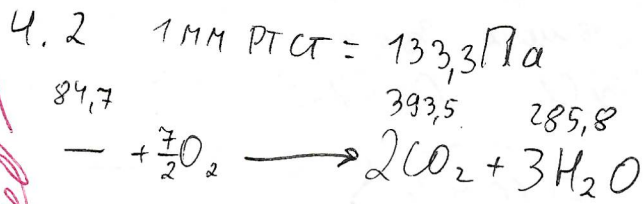 4.2 1 мм рт ст = 133,3 Па
84,7 393,5 285,8
— + 7/2 O₂ ⟶ 2CO₂ + 3H₂O